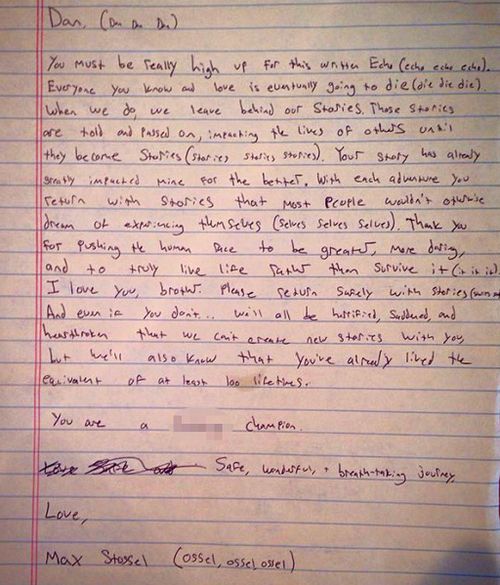 Dan, (Dan Dan Dan)
You must be really high up for this written Echo (echo echo echo).
Everyone you know and love is eventually going to die (die die die).
When we do, we leave behind our Stories. Those stories
are told and passed on, impacting the lives of others until
they become Stories (stories stories stories). Your story has already
greatly impacted mine for the better. With each adventure you
return with stories that most people wouldn't otherwise
dream of experiencing themselves (selves selves selves). Thank you
for pushing the human race to be greater, more daring,
and to truly live life rather than survive it (it it it).
I love you, brother. Please return safely with stories
And even if you don't... we'll all be horrified, saddened, and
heartbroken that we can't create new stories with you,
but we'll also know that you've already lived the
equivalent of at least 100 lifetimes.
You are a champion.
Safe, wonderful, + breath-taking journey.
Love,
Max Stossel (ossel, ossel, ossel)